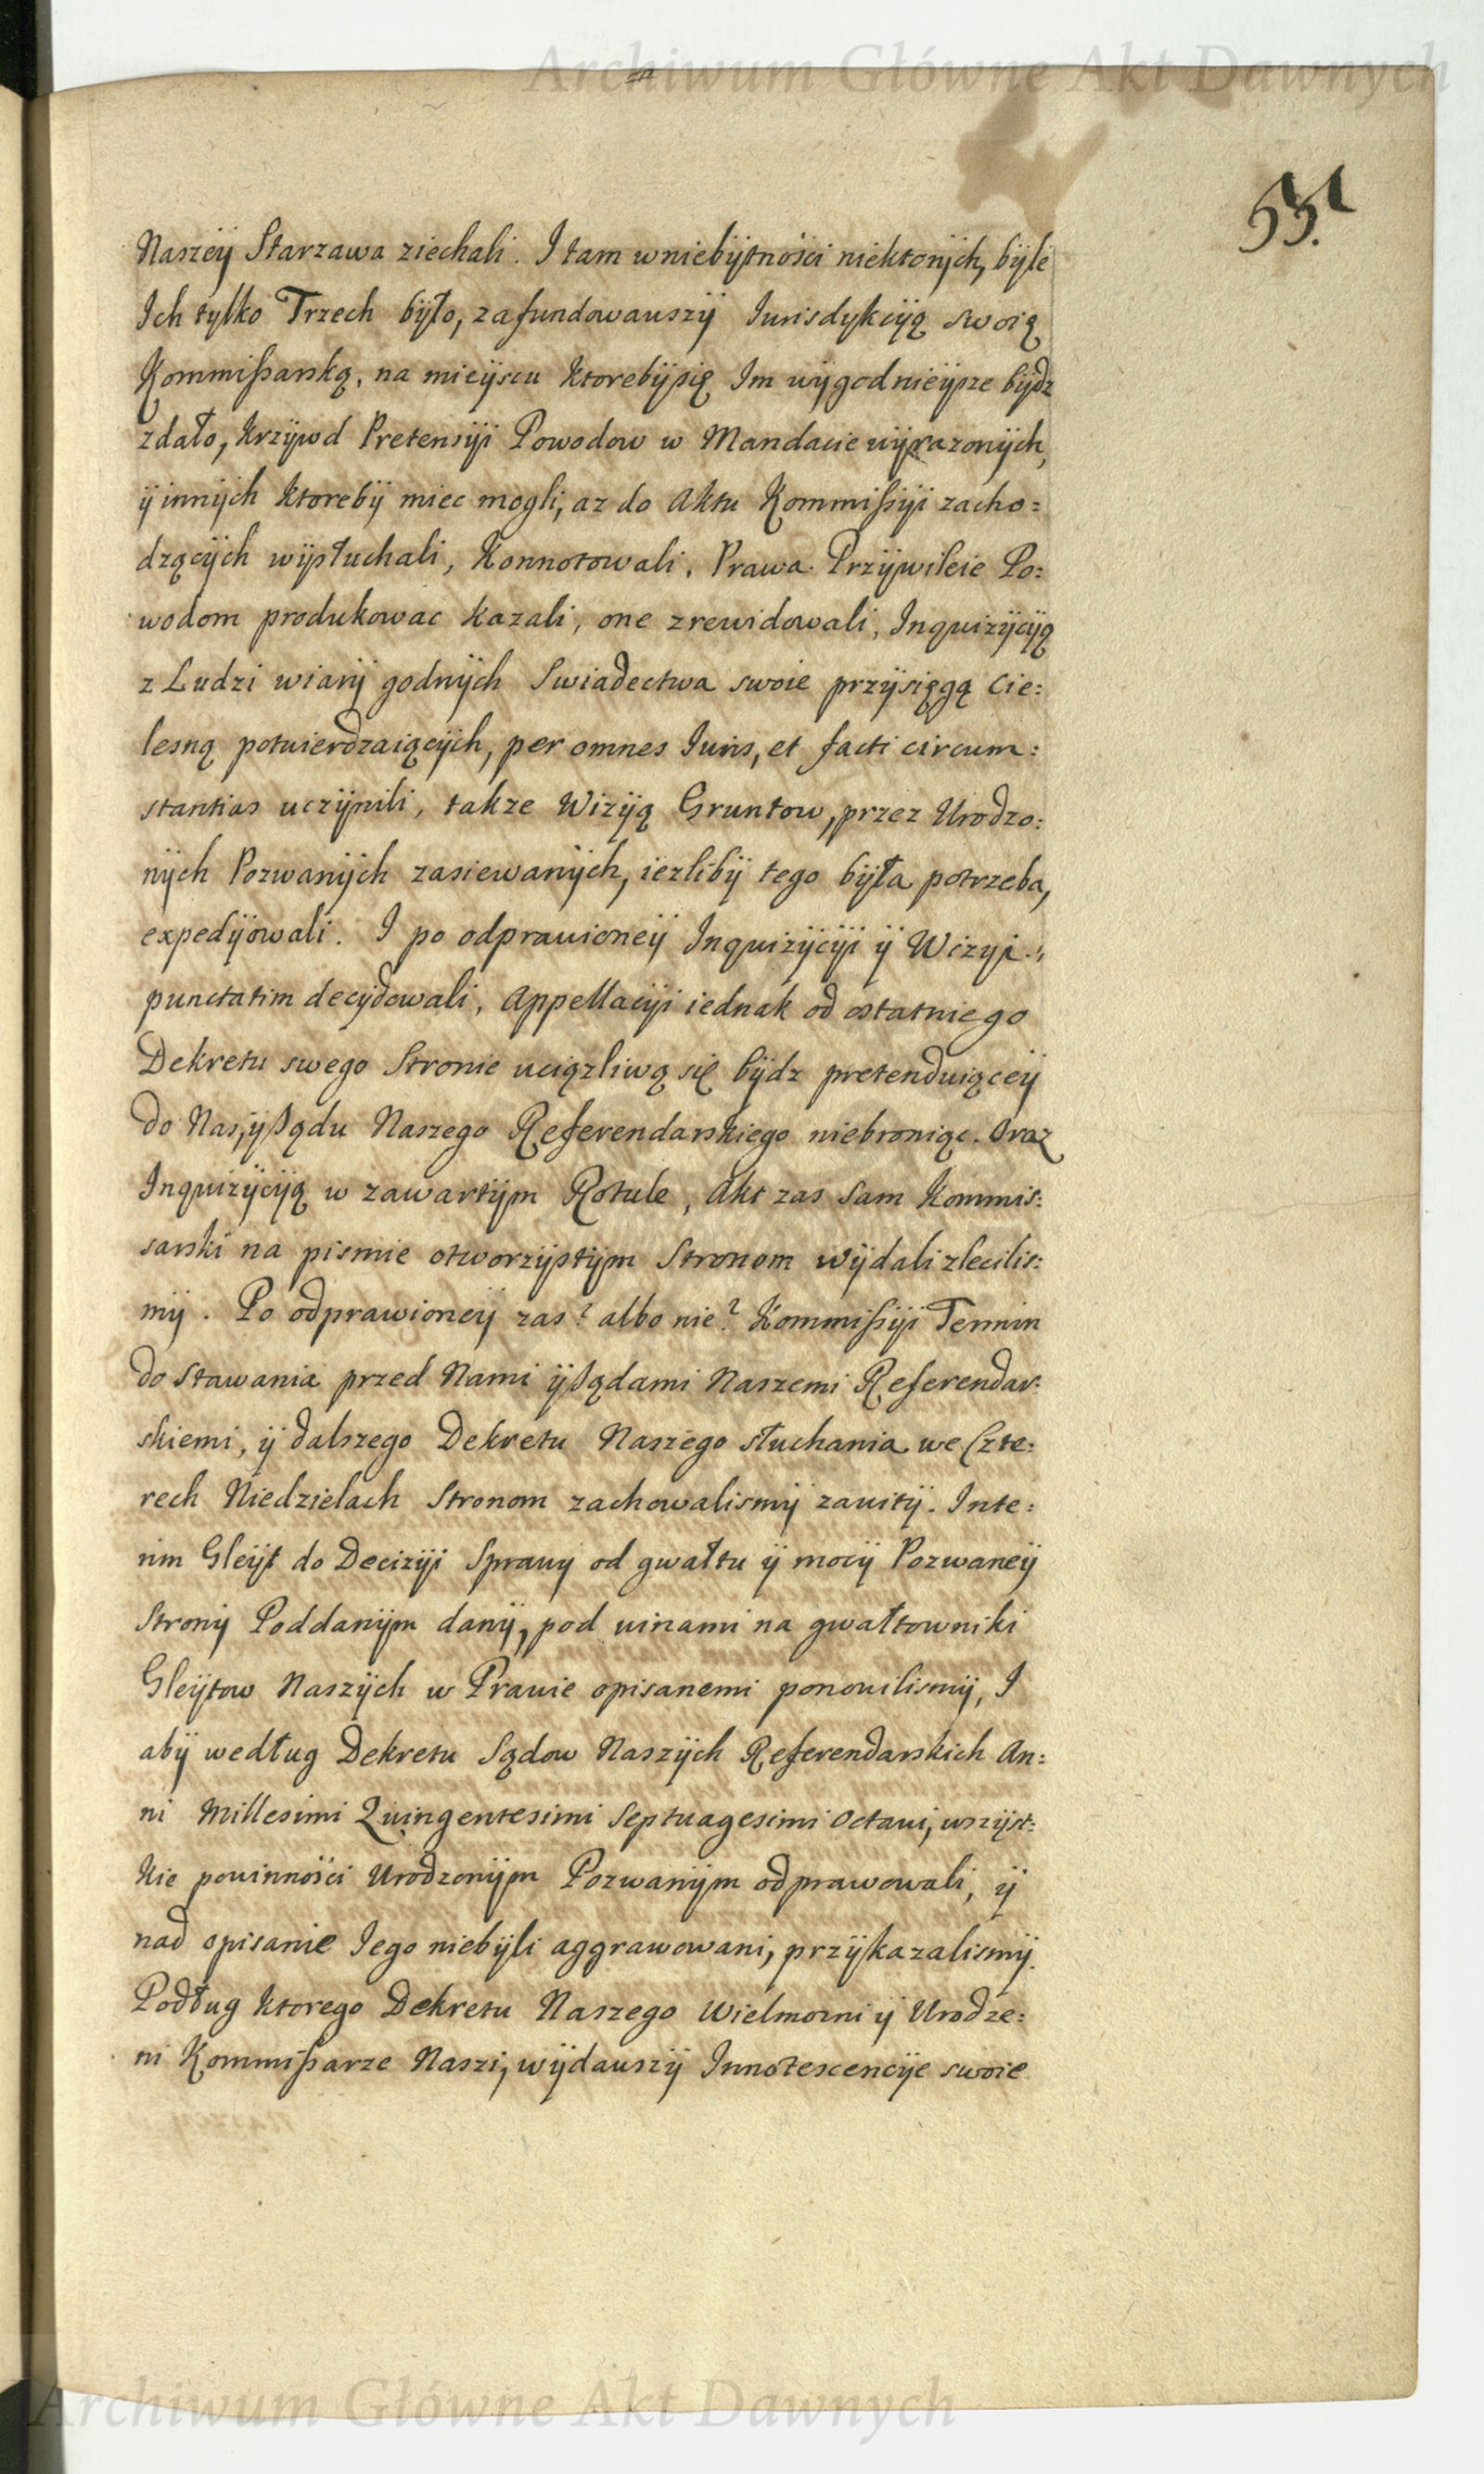 Archiwum Główne Akt Dawnych
53.
Naszeÿ Starzawa ziechali. I tam wniebÿtności niektorÿch, bÿle
Ich tylko Trzech bÿło, zafundowawszÿ Iurisdykcÿą swoią
Kommißarską, na mieÿscu ktorebÿsię Im wÿgodnieÿsze bÿdz
zdało, krzÿwd Pretensÿi Powodow w Mandacie wÿrazonÿch,
ÿ innÿch ktorebÿ miec mogli, az do Aktu Kommißÿi zacho=
dzącÿch wÿsłuchali, Konnotowali, Prawa Przÿwileie Po=
wodom produkowac kazali, one zrewidowali, Inquizÿcÿą
z Ludzi wiarÿ godnÿch Swiadectwa swoie przÿsięgą Cie=
lesną potwierdzaiącÿch, per omnes Iuris, et facti circum=
stantias uczÿnili, takze Wizÿą Gruntow, przez Urodzo=
nÿch Pozwanÿch zasiewanÿch, iezlibÿ tego bÿła potrzeba,
expedÿowali. I po odprawioneÿ Inquizÿcÿi ÿ Wizyi
punctatim decÿdowali, Appellacÿi iednak od ostatniego
Dekretu swego Stronie uciązliwą się bÿdz pretenduiąceÿ
do Nas, ÿ Sądu Naszego Referendarskiego niebroniąc. Oraz
Inquizÿcÿą w zawartÿm Rotule, Akt zas Sam Kommis=
sarski na pismie otworzÿstÿm Stronom wÿdali zlecilis=
mÿ. Po odprawioneÿ zas? albo nie? Kommißÿi Termin
do Stawania przed Nami ÿ Sądami Naszemi Referendar=
skiemi, ÿ dalszego Dekretu Naszego słuchania we Czte=
rech Niedzielach Stronom zachowalismÿ zawitÿ. Inte=
rim Gleÿt do Decizÿi Sprawy od gwałtu ÿ mocÿ Pozwaneÿ
Stronÿ Poddanÿm danÿ, pod winami na gwałtowniki
Gleÿtow Naszÿch w Prawie opisanemi ponowilismÿ, I
abÿ według Dekretu Sądow Naszÿch Referendarskich An=
ni Millesimi Quingentesimi Septuagesimi Octavi, wszÿst=
kie powinności Urodzonÿm Pozwanÿm odprawowali, ÿ
nad opisanie Iego niebÿli aggrawowani, przÿkazalismÿ.
Podług ktorego Dekretu Naszego Wielmozni ÿ Urodze=
ni Kommißarze Naszi, wÿdawszÿ Innotescencÿe swoie
Archiwum Główne Akt Dawnych